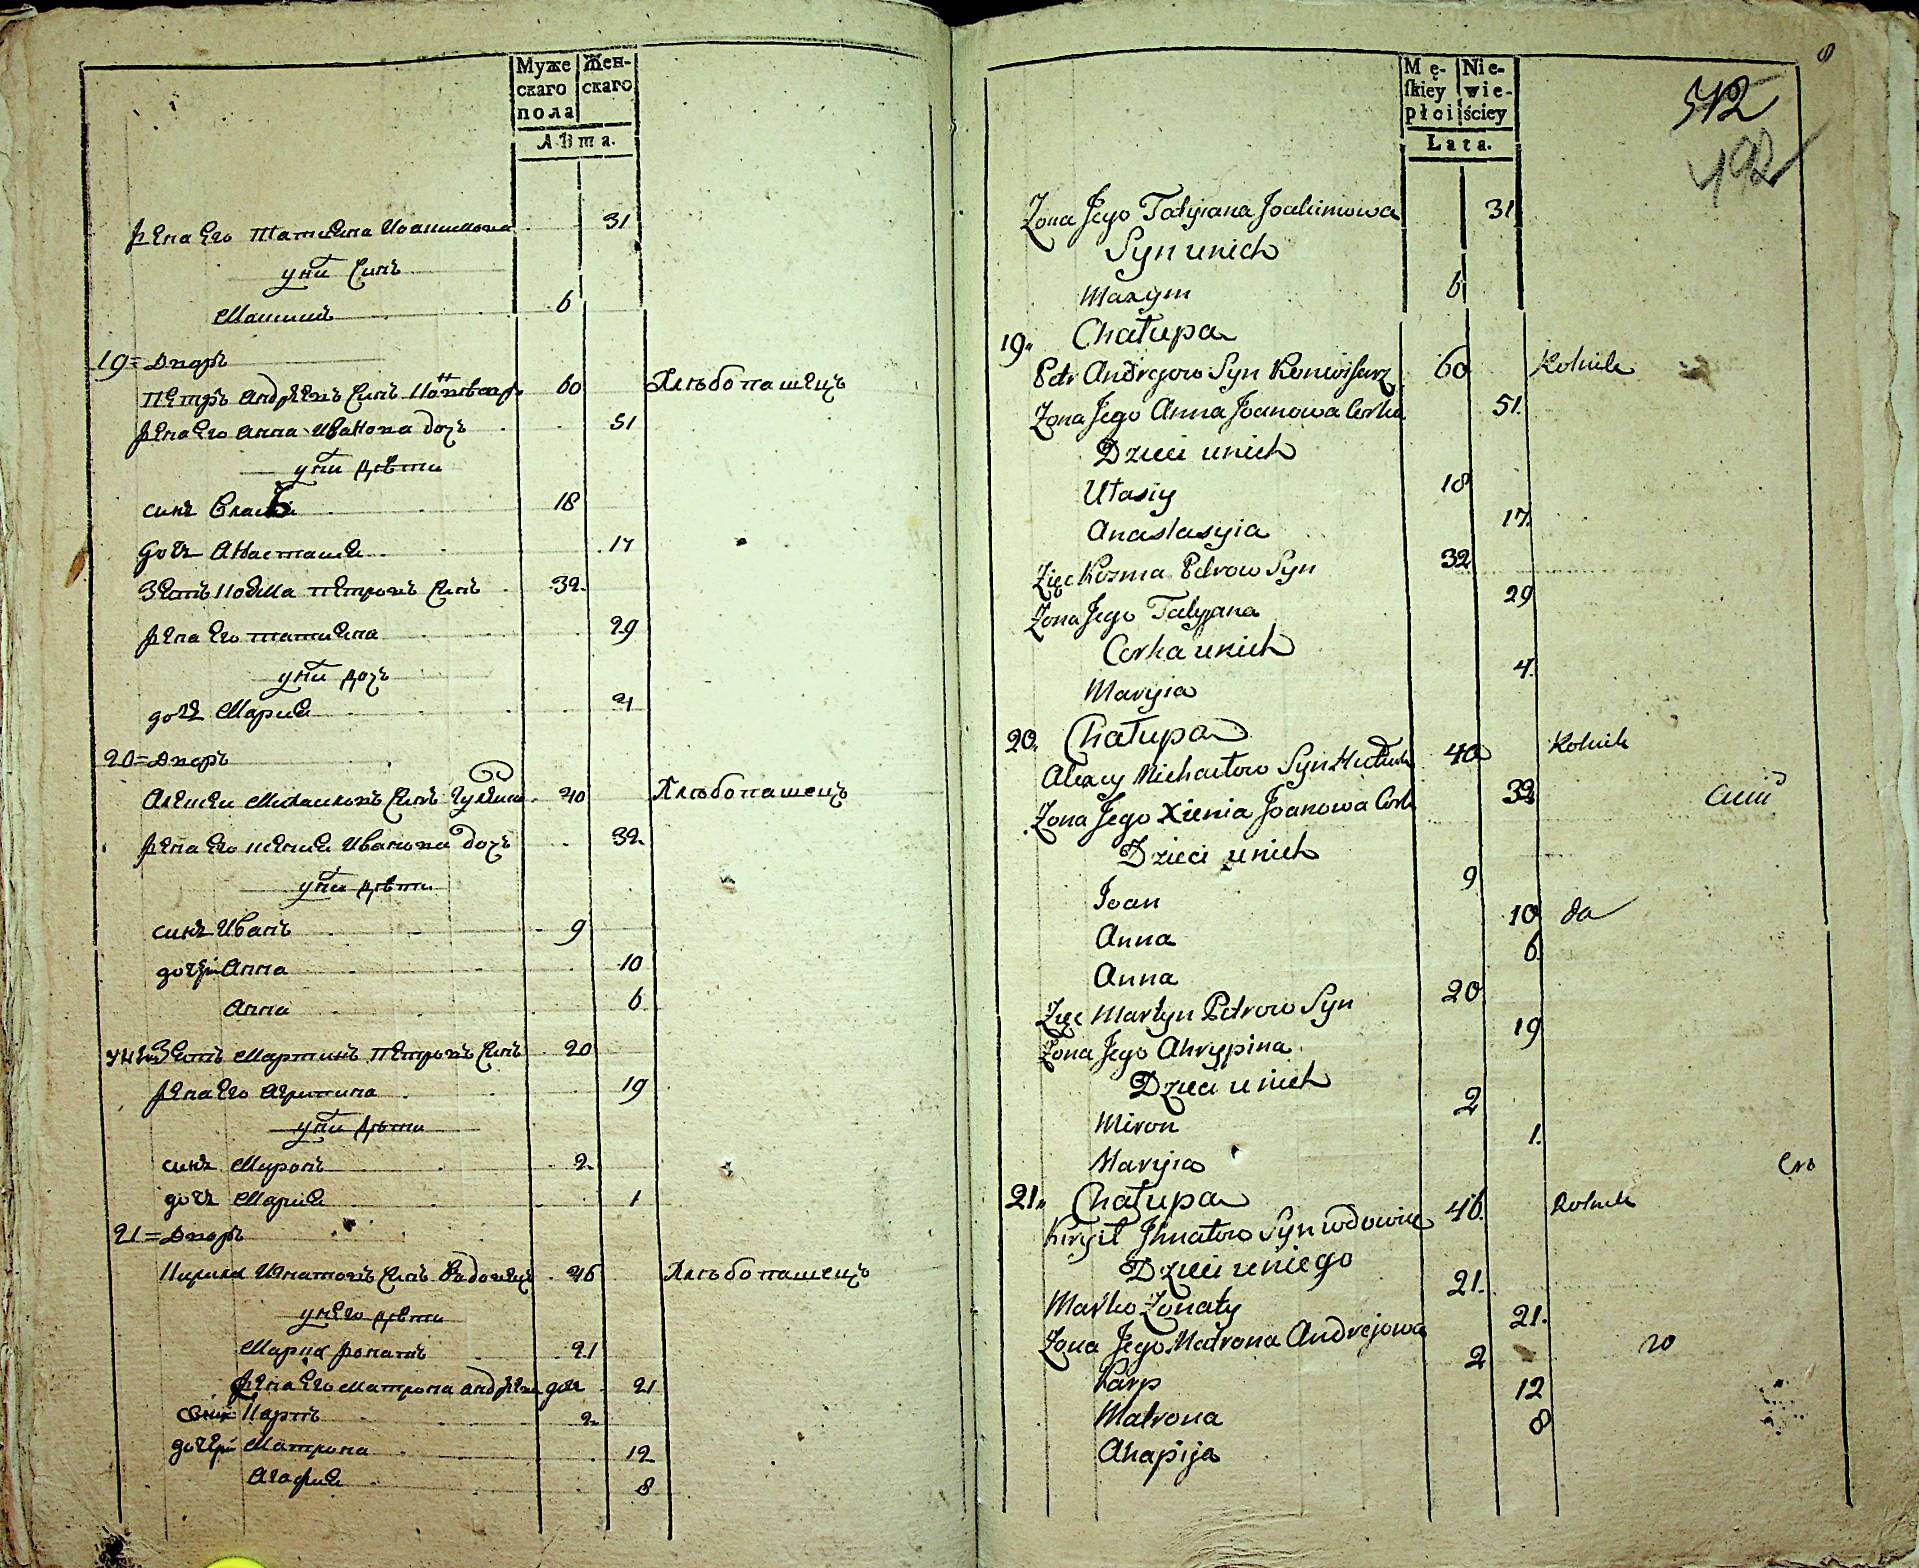 Муже
скаго
пола
Жен-
скаго
Лѣта.
жена его татиана Иоакимова 31
у ни синъ
Мацимъ 6
19 = Дворъ
петръ андреевъ синъ 60 Хлѣбопашецъ
жена его анна Иванова дочъ 51
у ни дѣти
синъ Власъ 18
дочь Анастасиа 17
Зять Козма петровъ синъ 32.
жена его татиана 29
у ни дочъ
дочъ Мариа 4
20 = Дворъ
Алексеи Михаиловъ синъ 40 Хлѣбопашецъ
жена его ксениа Иванова дочъ 32
у ни дѣти
синъ Иванъ 9
дочери Анна 10
Анна 6
у нихъ Зять Мартинъ петровъ синъ 20
жена его Агрипина 19
у ни дѣти
синъ Миронъ 2
дочь Мариа 1
21 = Дворъ
Кирила Игнатовъ синъ вдовецъ 46 Хлѣбопашецъ
у него дѣти
Марко женатъ 21
жена его матрона андреева дочъ 21
Карпъ 2
дочери Матрона 12
Агафиа 8
Mę-
skiey
płci
Nie-
wie-
ściey
Lata.
512
492
Zona Jego Tatyiana Joakimowa 31
Syn u nich
Maxym 6
19. Chałupa
Petr Andrejow Syn Konwisarz 60 Rolnik
Zona Jego Anna Joanowa Corka 51.
Dzieci u nich
Ułasiy 18
Anastasyia 17.
Zięc Kozma Petrow Syn 32
Zona Jego Tatyana 29
Corka u nich
Maryia 4.
20. Chałupa
Alexey Michaiłow Syn 40 Rolnik
Zona Jego Xienia Joanowa Cork 32
Dzieci u nich
Joan 9
Anna 10 da
Anna 6.
Zięc Martyn Petrow Syn 20
Zona Jego Ahrypina 19
Dzieci u nich
Miron 2
Maryia 1.
21. Chałupa
Kirył Jhnatow Syn wdowiec 46. Rolnik
Dzieci u niego
Marko Zonaty 21.
Zona Jego Matrona Andrejowa 21.
Karp 2
Matrona 12
Ahapija 8